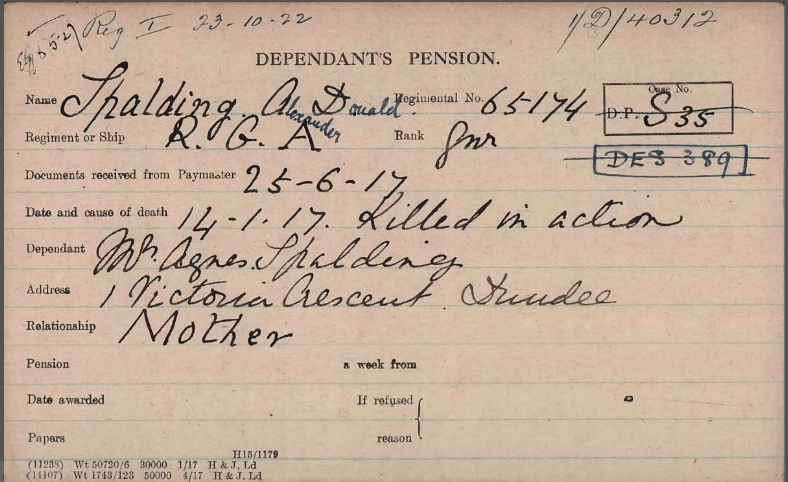 Reg I 23-10-22 1/D/40312
8-5-27
DEPENDANT'S PENSION.
Name Spalding A Alexander Donald. Regimental No. 65174 Case No. D.P. S 35
Regiment or Ship R. G. A Rank Gnr
DES 389
Documents received from Paymaster 25-6-17
Date and cause of death 14-1.17. Killed in action
Dependant Mrs. Agnes Spalding
Address 1 Victoria Crescent. Dundee
Relationship Mother
Pension a week from
Date awarded If refused
Papers reason
H15/1179
(11238) Wt 50720/6 30000 1/17 H & J, Ld
(14107) Wt 1743/123 50000 4/17 H & J, Ld